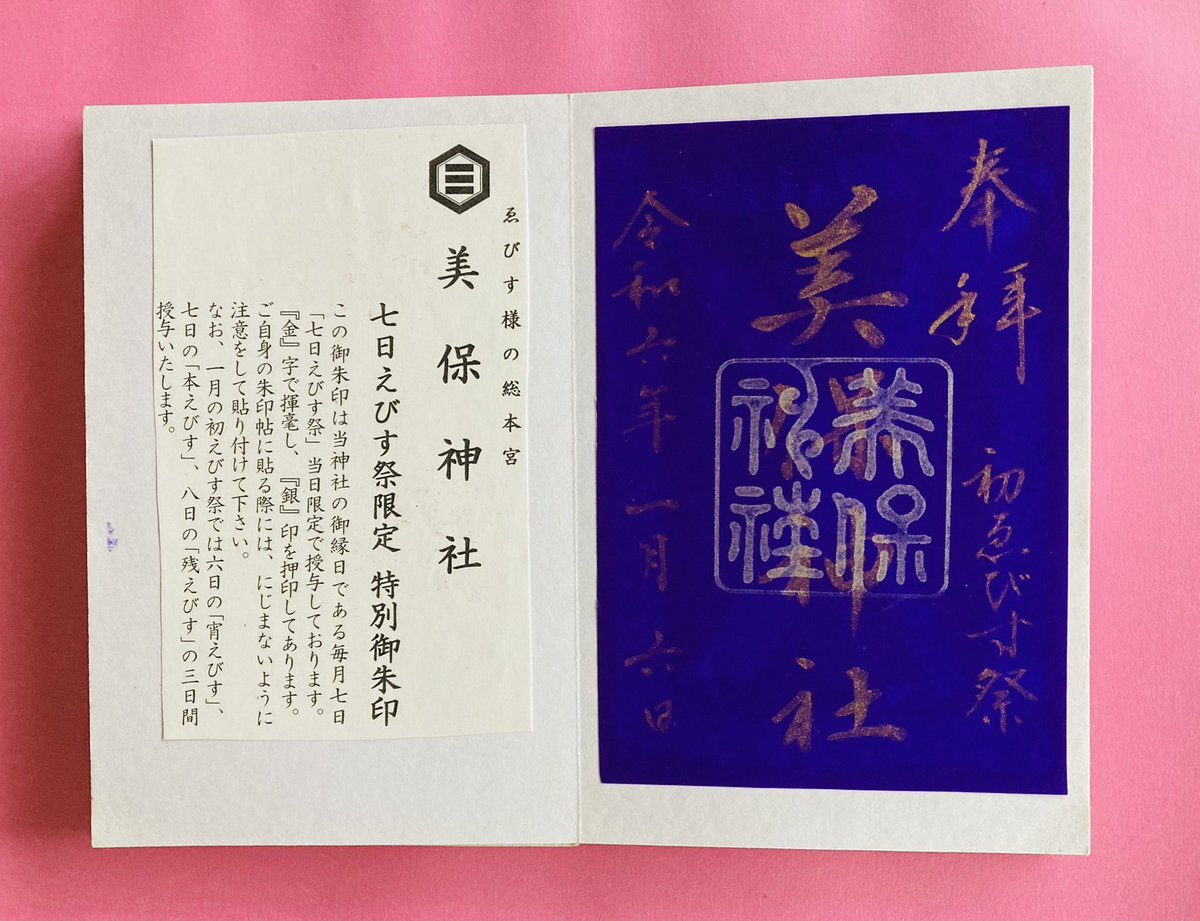 ゑびす様の総本宮
美保神社
七日えびす祭限定 特別御朱印
この御朱印は当神社の御縁日である毎月七日
「七日えびす祭」当日限定で授与しております。
『金』字で揮毫し、『銀』印を押印してあります。
ご自身の朱印帖に貼る際には、にじまないように
注意をして貼り付けて下さい。
なお、一月の初えびす祭では六日の「宵えびす」、
七日の「本えびす」、八日の「残えびす」の三日間
授与いたします。
奉拝 初ゑびす祭
美保神社
美保
神社
令和六年一月六日